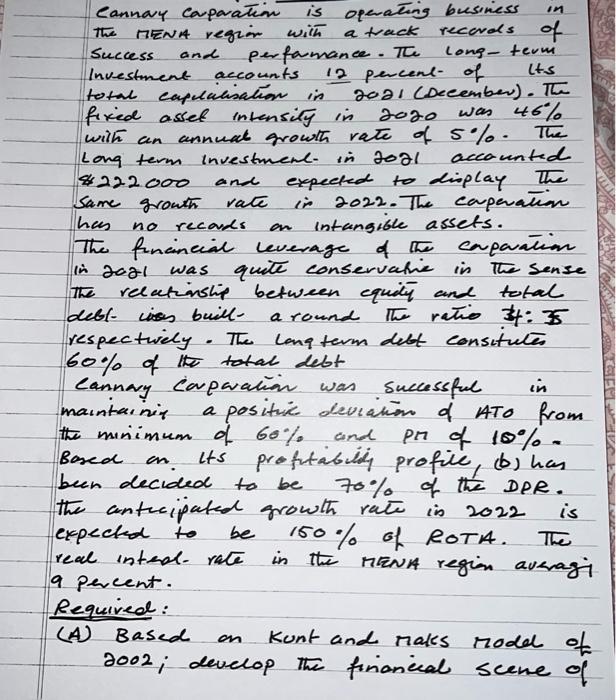 Cannary Corporation is operating business in
The MENA region with a track records of
Success and performance. The long-term
Investment accounts 12 percent of its
total capitalisation in 2021 (December). The
fixed asset intensity in 2020 was 46%
with an annual growth rate of 5%. The
Long term investment in 2021 accounted
$222000 and expected to display the
Same growth rate in 2022. The corporation
has no records on intangible assets.
The financial leverage of the corporation
in 2021 was quite conservative in the sense
the relationship between equity and total
debt was built around the ratio
respectively. The Long term debt consitutes
60% of the total debt
Cannary Corporation was successful in
maintainig a positive deviation of ATO from
the minimum of 60% and PM of 10%.
Based on its profitability profile, (b) has
been decided to be 70% of the DPR.
the anticipated growth rate in 2022 is
expected to be 150% of ROTA. The
real rate in the MENA region averagi
9 percent.
Required:
(A) Based on Kunt and Maks Model of
2002; develop the financial scene of